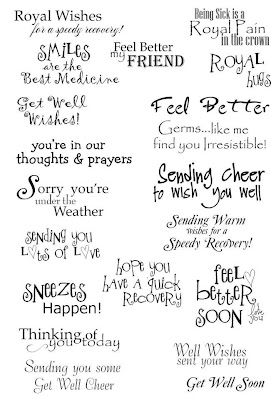 Royal Wishes
for a speedy recovery!
Being Sick is a
Royal Pain
in the crown
SMiLES
are the
Best Medicine
Feel Better
my FRIEND
ROYAL
hugs
Get Well
Wishes!
Feel Better
Germs...like me
find you Irresistible!
you're in our
thoughts & prayers
Sending Cheer
to wish you well
Sorry you're
under the
Weather
Sending Warm
wishes for a
Speedy Recovery!
sending you
Lots of Love
hope you
have a quick
Recovery
feel
better
soon
love you
SNEEZES
Happen!
Thinking of
you today
Well Wishes
sent your way
Sending you some
Get Well Cheer
Get Well Soon